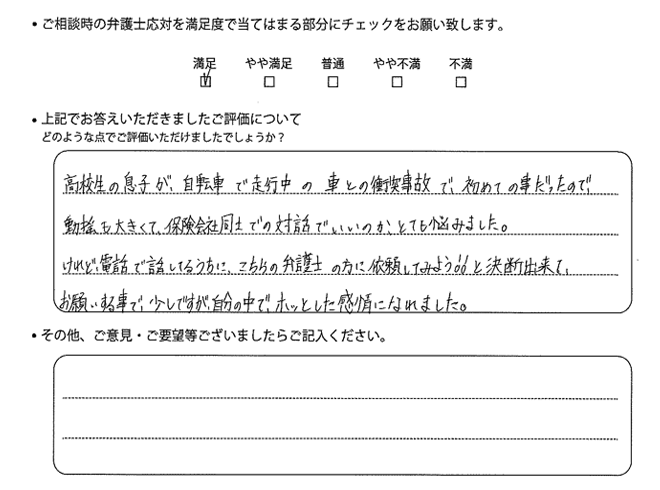 ・ご相談時の弁護士応対を満足度で当てはまる部分にチェックをお願い致します。
満足 やや満足 普通 やや不満 不満
・上記でお答えいただきましたご評価について
どのような点でご評価いただけましたでしょうか？
高校生の息子が、自転車で走行中の車との衝突事故で、初めての事だったので、
動揺も大きくて、保険会社同士での対話でいいのか、とても悩みました。
けれど、電話で話してるうちに、こちらの弁護士の方に依頼してみよう!!と決断出来て、
お願いする事で、少しですが、自分の中で、ホッとした感情になれました。
・その他、ご意見・ご要望等ございましたらご記入ください。